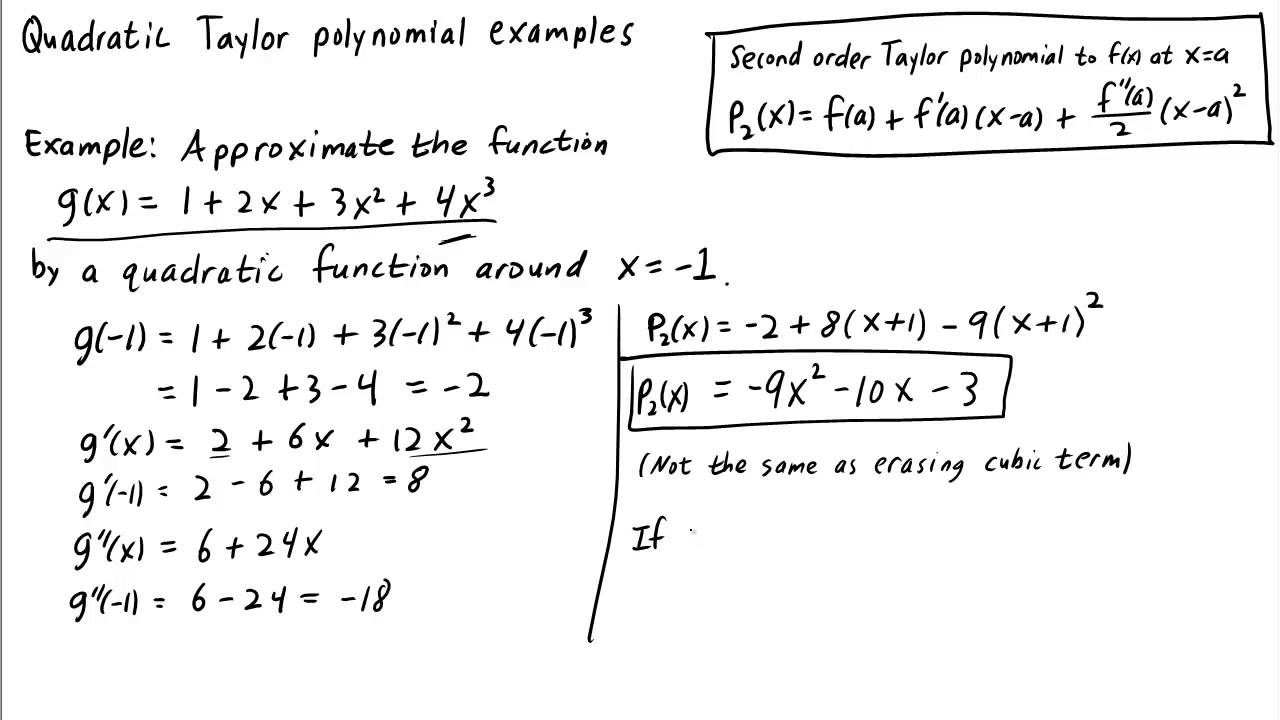 Quadratic Taylor polynomial examples
Second order Taylor polynomial to f(x) at x=a
P₂(x) = f(a) + f'(a)(x-a) + f''(a)/2 (x-a)²
Example: Approximate the function
g(x) = 1 + 2x + 3x² + 4x³
by a quadratic function around x = -1.
g(-1) = 1 + 2(-1) + 3(-1)² + 4(-1)³
= 1 - 2 + 3 - 4 = -2
g'(x) = 2 + 6x + 12x²
g'(-1) = 2 - 6 + 12 = 8
g''(x) = 6 + 24x
g''(-1) = 6 - 24 = -18
P₂(x) = -2 + 8(x+1) - 9(x+1)²
P₂(x) = -9x² - 10x - 3
(Not the same as erasing cubic term)
If